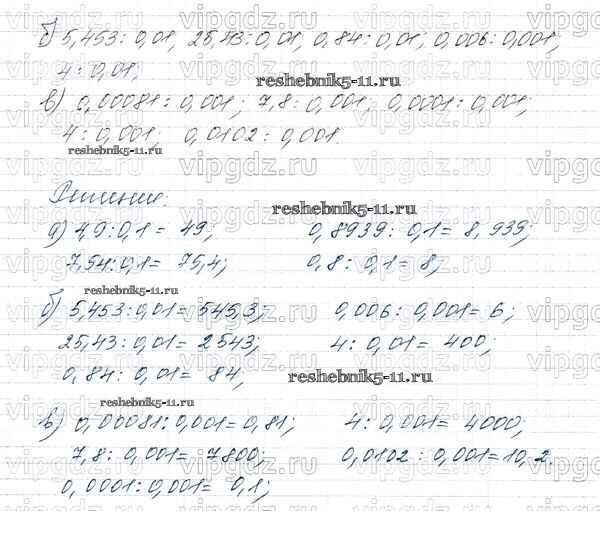 б) 5,453 : 0,01, 25,43 : 0,01, 0,84 : 0,01; 0,006 : 0,001;
4 : 0,01;
в) 0,00081 : 0,001; 7,8 : 0,001, 0,0001 : 0,001;
4 : 0,001; 0,0102 : 0,001.
Решение:
а) 4,9 : 0,1 = 49; 0,8939 : 0,1 = 8,939;
7,54 : 0,1 = 75,4; 0,8 : 0,1 = 8;
б) 5,453 : 0,01 = 545,3; 0,006 : 0,001 = 6;
25,43 : 0,01 = 2543; 4 : 0,01 = 400;
0,84 : 0,01 = 84,
в) 0,00081 : 0,001 = 0,81; 4 : 0,001 = 4000;
7,8 : 0,001 = 7800; 0,0102 : 0,001 = 10,2.
0,0001 : 0,001 = 0,1;
reshebnik5-11.ru
reshebnik5-11.ru
reshebnik5-11.ru
reshebnik5-11.ru
reshebnik5-11.ru
reshebnik5-11.ru
vipgdz.ru